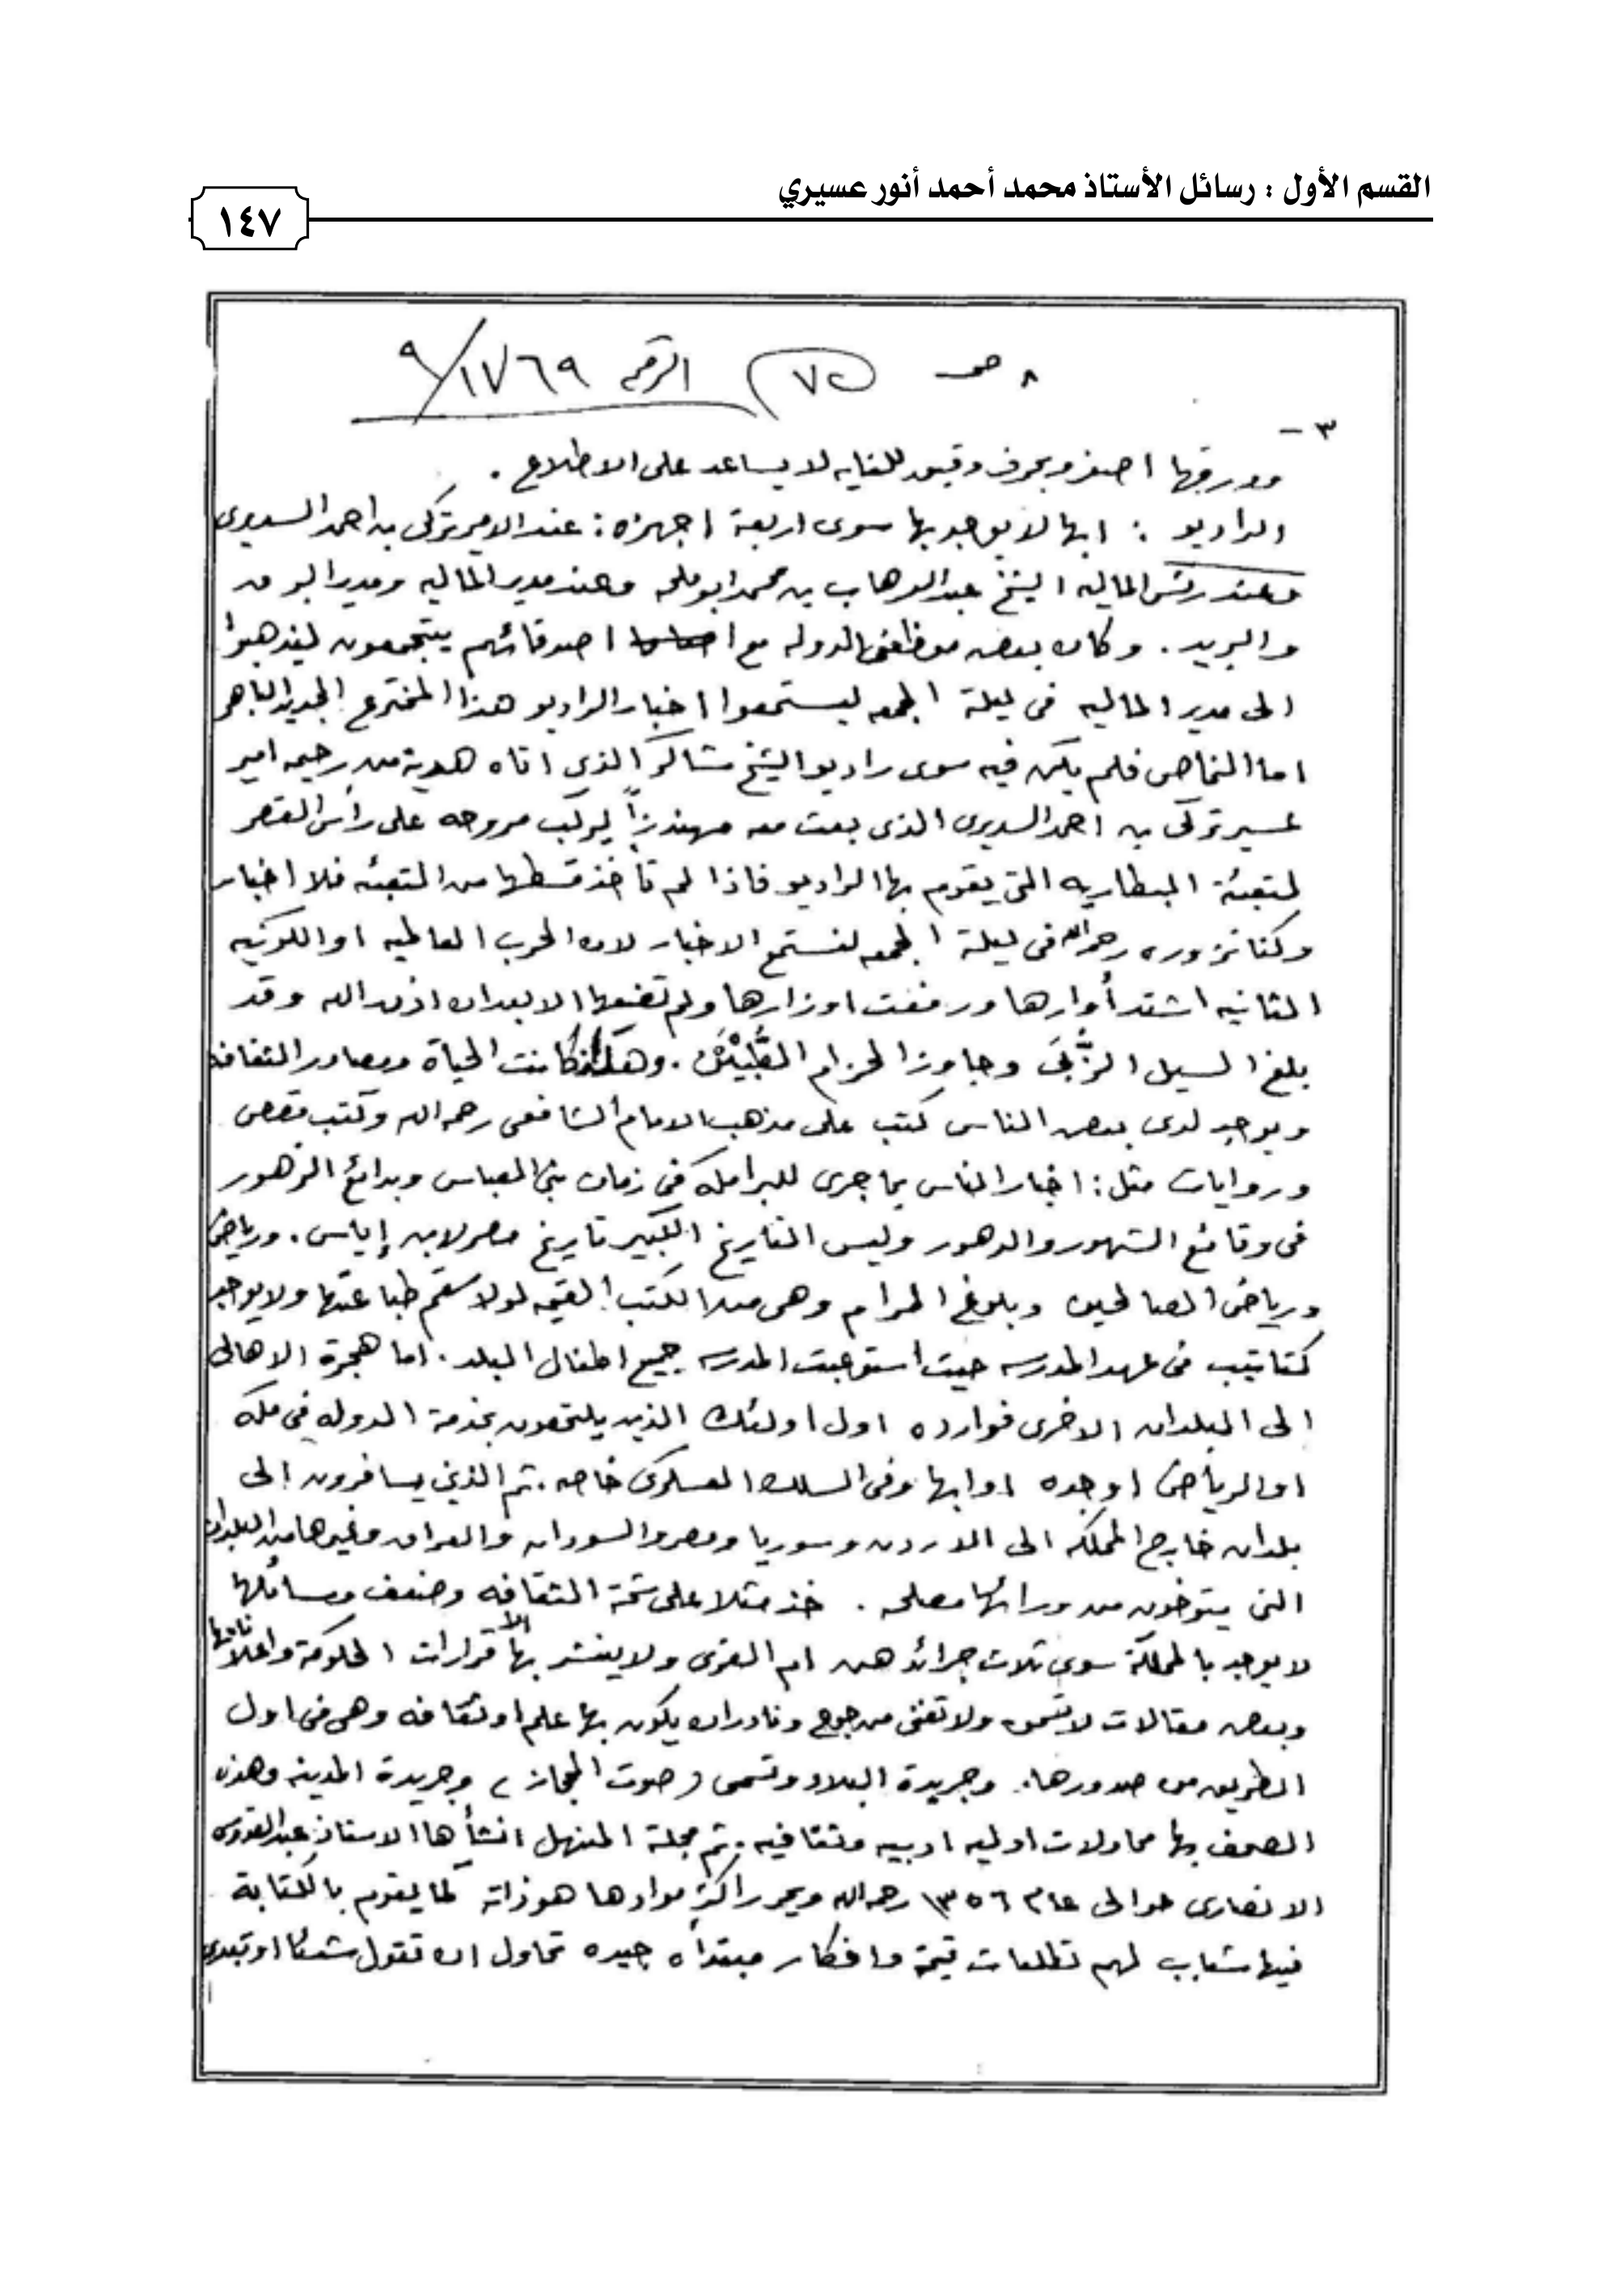 القسم الأول : رسائل الأستاذ محمد أحمد أنور عسيري
١٤٧
٨ صـ ٧٥ الرقم ١٧٦٩/٩
٣ -
وورقها اصفر وبحروف دقيقه للغايه لا يساعد على الاطلاع .
الراديو : ابها لا يوجد بها سوى اربعة اجهزه : عند الامير تركي بن احمد السديري
وعند رئيس الماليه الشيخ عبدالوهاب بن محمد ابو ملحه وعند مدير الماليه ومدير البرق
والبريد . وكان بعض موظفي الدوله مع اصدقائهم يتجمعون ليذهبوا
الى مدير الماليه فى ليلة الجمعه ليستمعوا اخبار الراديو هذا المخترع الجديد الباهر
اما النماص فلم يكن فيه سوى راديو الشيخ شاكر الذي اتاه هدية من امير
عسير تركي بن احمد السديرى الذى بعث معه مهندزاً ليركب مروحه على رأس القصر
لتعبئة البطاريه التى يقوم بها الراديو فاذا لم تأخذ قسطها من التعبئه فلا اخبار
وكنا نزوره رحمه الله فى ليلة الجمعه لنستمع الاخبار لان الحرب العالميه او الكونيه
الثانيه اشتد أوارها ورفعت اوزارها ولم تضعها الا بعد ان اذن الله وقد
بلغ السيل الزُّبَى وجاوز الحزام الطُّبْيَيْن . وهكذا كانت الحياة ومصادر الثقافه
ويوجد لدى بعض الناس كتب على مذهب الامام الشافعى رحمه الله وكتب قصص
وروايات مثل : اخبار الناس بما جرى للبرامكه في زمان بنى العباس وبدائع الزهور
فى وقائع الشهور والدهور وليس التاريخ الكبير تاريخ مصر لابن إياس . ورياض
ورياض الصالحين وبلوغ المرام وهى من الكتب القيمه لولا سقم طباعتها ولا يوجد
كتاتيب فى عهد المدرسه حيث استوعبت المدرسه جميع اطفال البلد . اما هجرة الاهالى
الى البلدان الاخرى فوارده اول اولئك الذين يلتحقون بخدمة الدوله في مكه
او الرياض او جده او ابها وفى السلك العسكرى خاصه . ثم الذين يسافرون إلى
بلدان خارج المملكه الى الاردن وسوريا ومصر والسودان والعراق وغيرها من البلدان
التى يتوخون من ورائها مصلحه . خذ مثلا على شحة الثقافه وضعف وسائلها
لا يوجد بالمملكة سوى ثلاث جرائد هن ام القرى ولا ينشر بها الا قرارات الحكومة واعلاناتها
وبعض مقالات لا تسمن ولا تغنى من جوع ونادر ان يكون بها علم او ثقافه وهى فى اول
الطريق من صدورها . وجريدة البلاد وتسمى ( صوت الحجاز ) وجريدة المدينه وهذه
الصحف بها محاولات اوليه ادبيه وثقافيه . ثم مجلة المنهل انشأها الاستاذ عبدالقدوس
الانصارى حوالى عام ١٣٥٦ رحمه الله ويحرر اكثر موادها هو ذاته كما يقوم بالكتابة
فيها شباب لهم تطلعات قيمة وافكار مبتدأه جيده تحاول ان تقول شيئا او تبدى